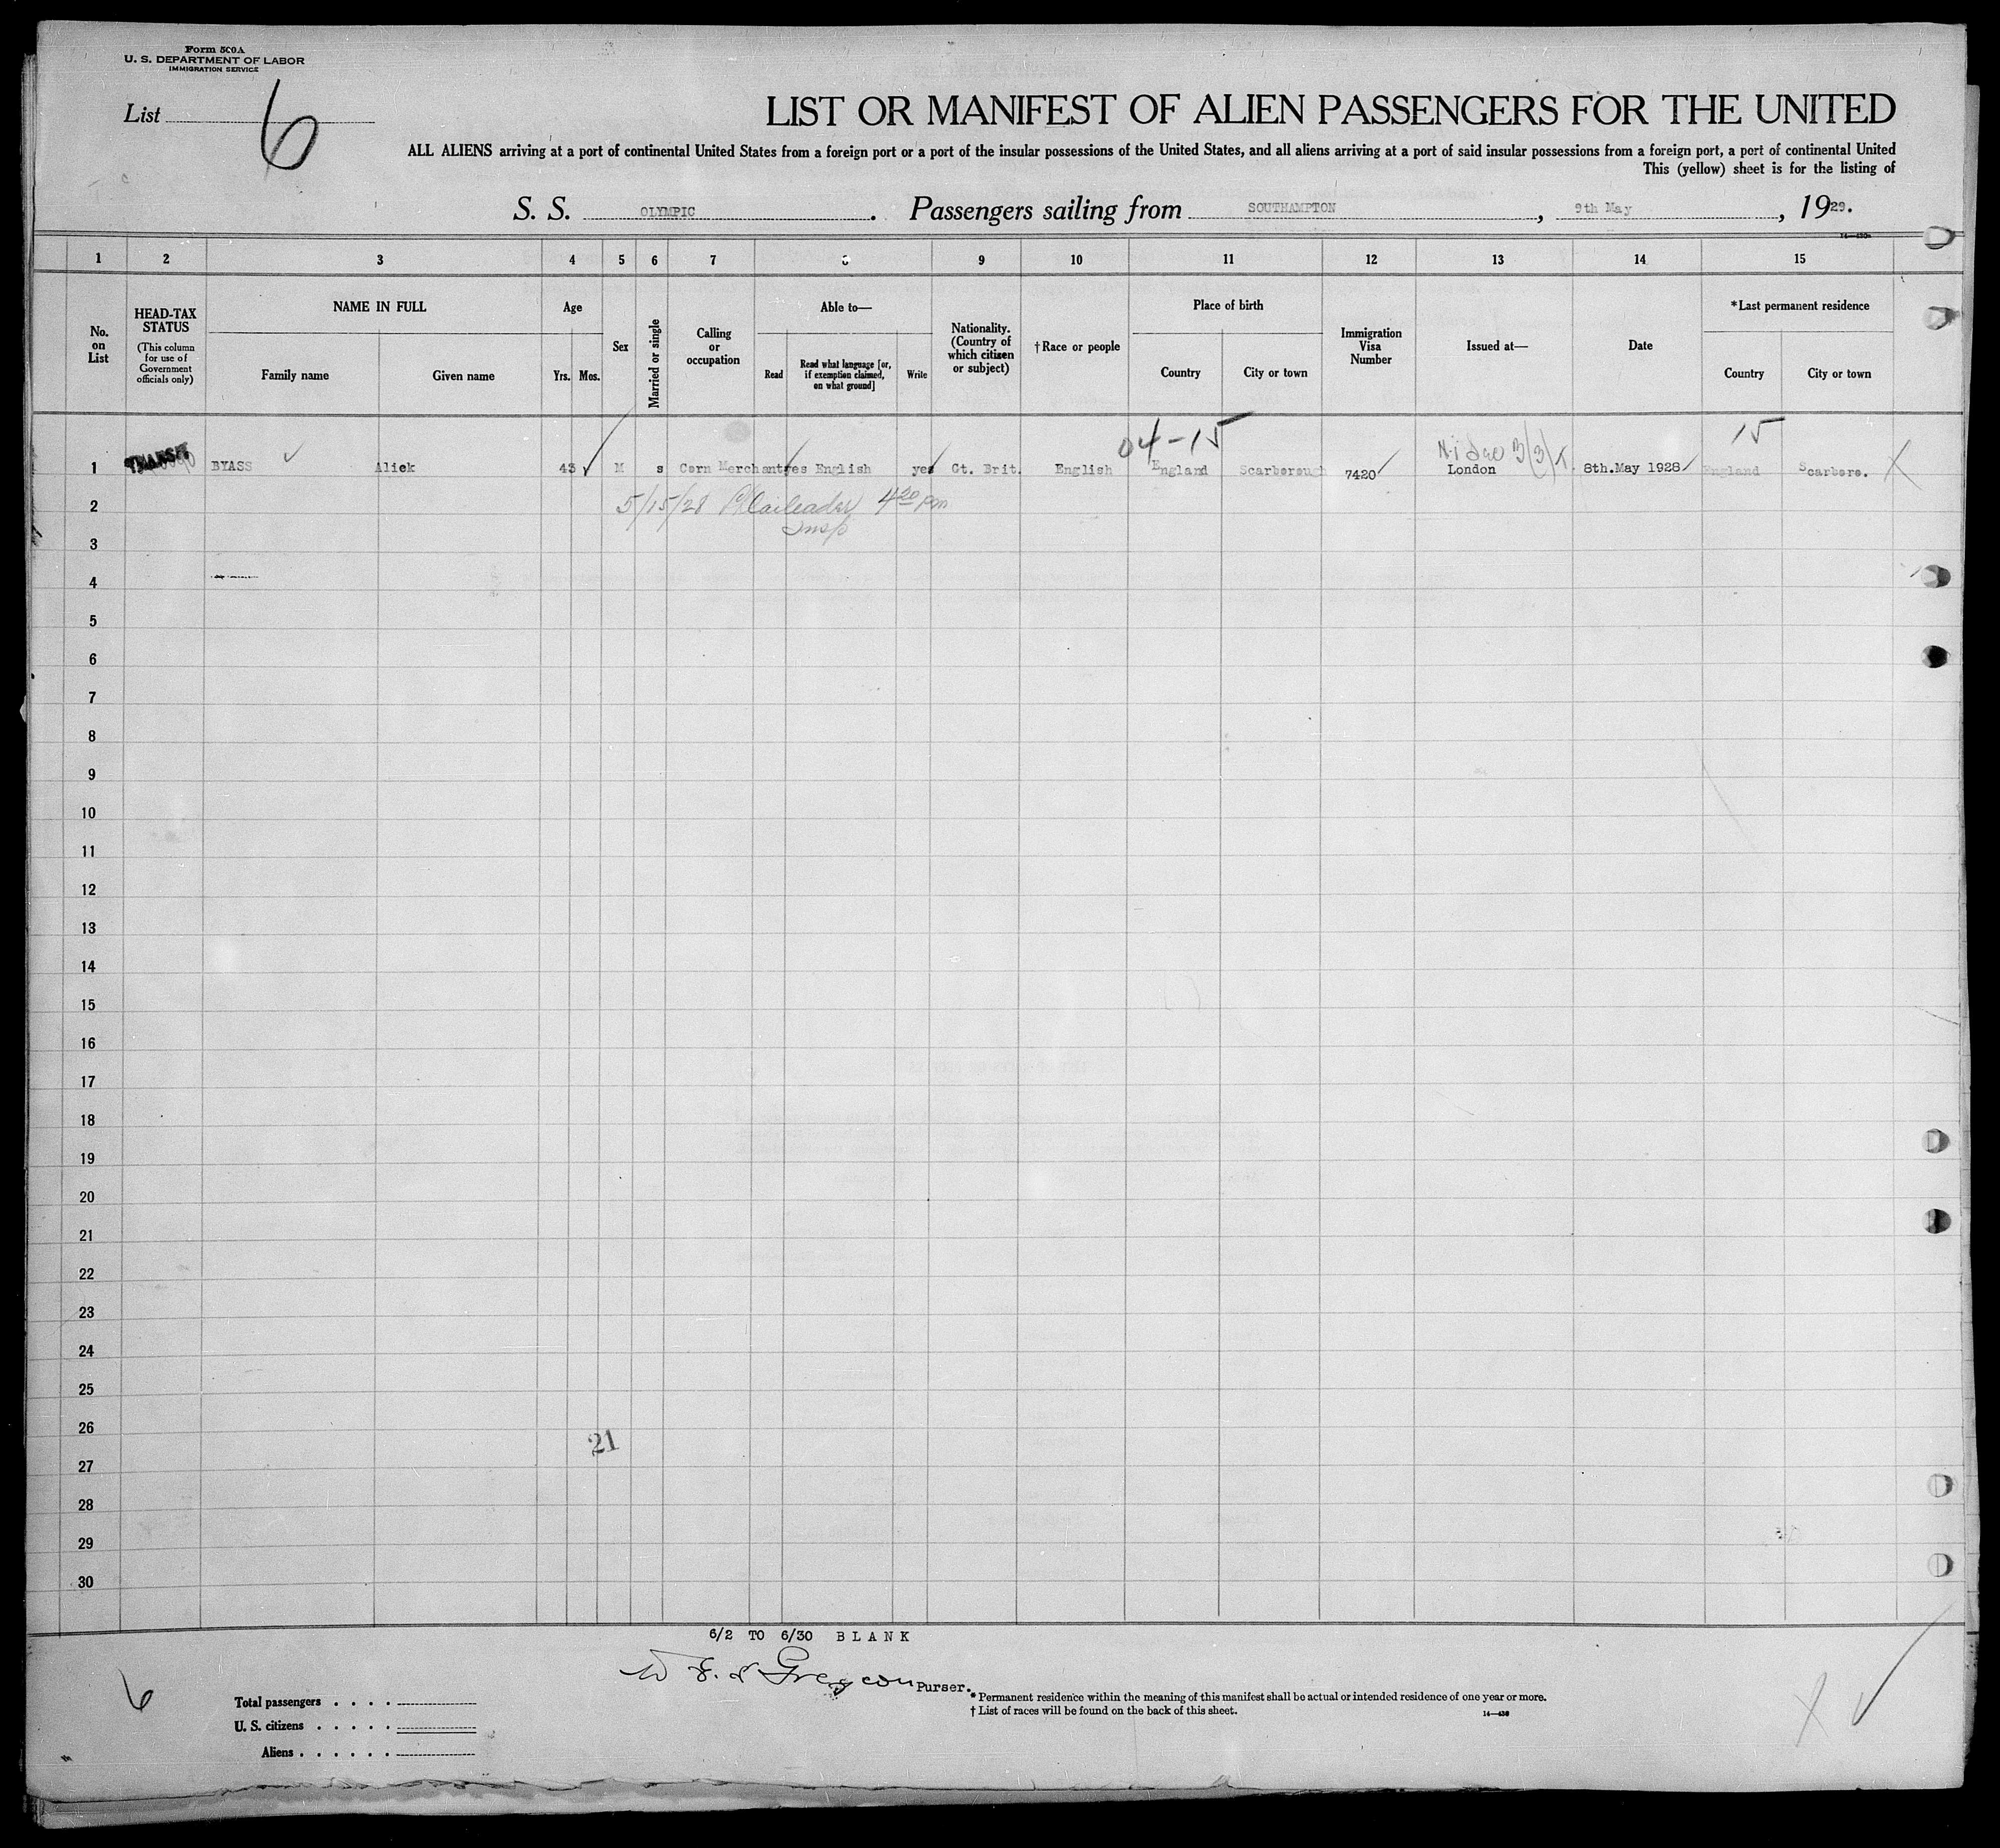 Form 500A
U. S. DEPARTMENT OF LABOR
IMMIGRATION SERVICE
List 6
LIST OR MANIFEST OF ALIEN PASSENGERS FOR THE UNITED
ALL ALIENS arriving at a port of continental United States from a foreign port or a port of the insular possessions of the United States, and all aliens arriving at a port of said insular possessions from a foreign port, a port of continental United
This (yellow) sheet is for the listing of
S. S. OLYMPIC. Passengers sailing from SOUTHAMPTON, 9th May, 1929.
1 2 3 4 5 6 7 8 9 10 11 12 13 14 15
No. on List
HEAD-TAX STATUS
(This column for use of Government officials only)
NAME IN FULL
Family name Given name
Age
Yrs. Mos.
Sex
Married or single
Calling or occupation
Able to—
Read
Read what language [or, if exemption claimed, on what ground]
Write
Nationality. (Country of which citizen or subject)
†Race or people
Place of birth
Country City or town
Immigration Visa Number
Issued at—
Date
*Last permanent residence
Country City or town
04-15 15
1 TRANSIT BYASS Alick 43 M s Corn Merchant yes English yes Gt. Brit. English England Scarborough 7420 London 8th.May 1928 England Scarboro.
2 5/15/28 4 20 pm
Insp
3
4
5
6
7
8
9
10
11
12
13
14
15
16
17
18
19
20
21
22
23
24
25
26
21
27
28
29
30
6/2 TO 6/30 BLANK
Purser.
6
Total passengers
U. S. citizens
Aliens
* Permanent residence within the meaning of this manifest shall be actual or intended residence of one year or more.
† List of races will be found on the back of this sheet.
14—430